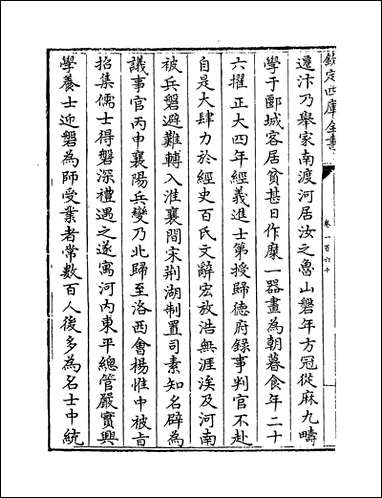 欽定四庫全書
卷一百六十
遷汴乃舉家南渡河居汝之魯山磐年方冠從麻九疇
學于郾城客居貧甚日作糜一器畫為朝暮食年二十
六擢正大四年經義進士第授歸德府錄事判官不赴
自是大肆力於經史百氏文辭宏放浩無涯涘及河南
被兵磐避難轉入淮襄間宋荆湖制置司素知名辟為
議事官丙申襄陽兵變乃北歸至洛西會楊惟中被㫖
招集儒士得磐深禮遇之遂寓河内東平總管嚴實興
學養士迎磐為師受業者常數百人後多為名士中統